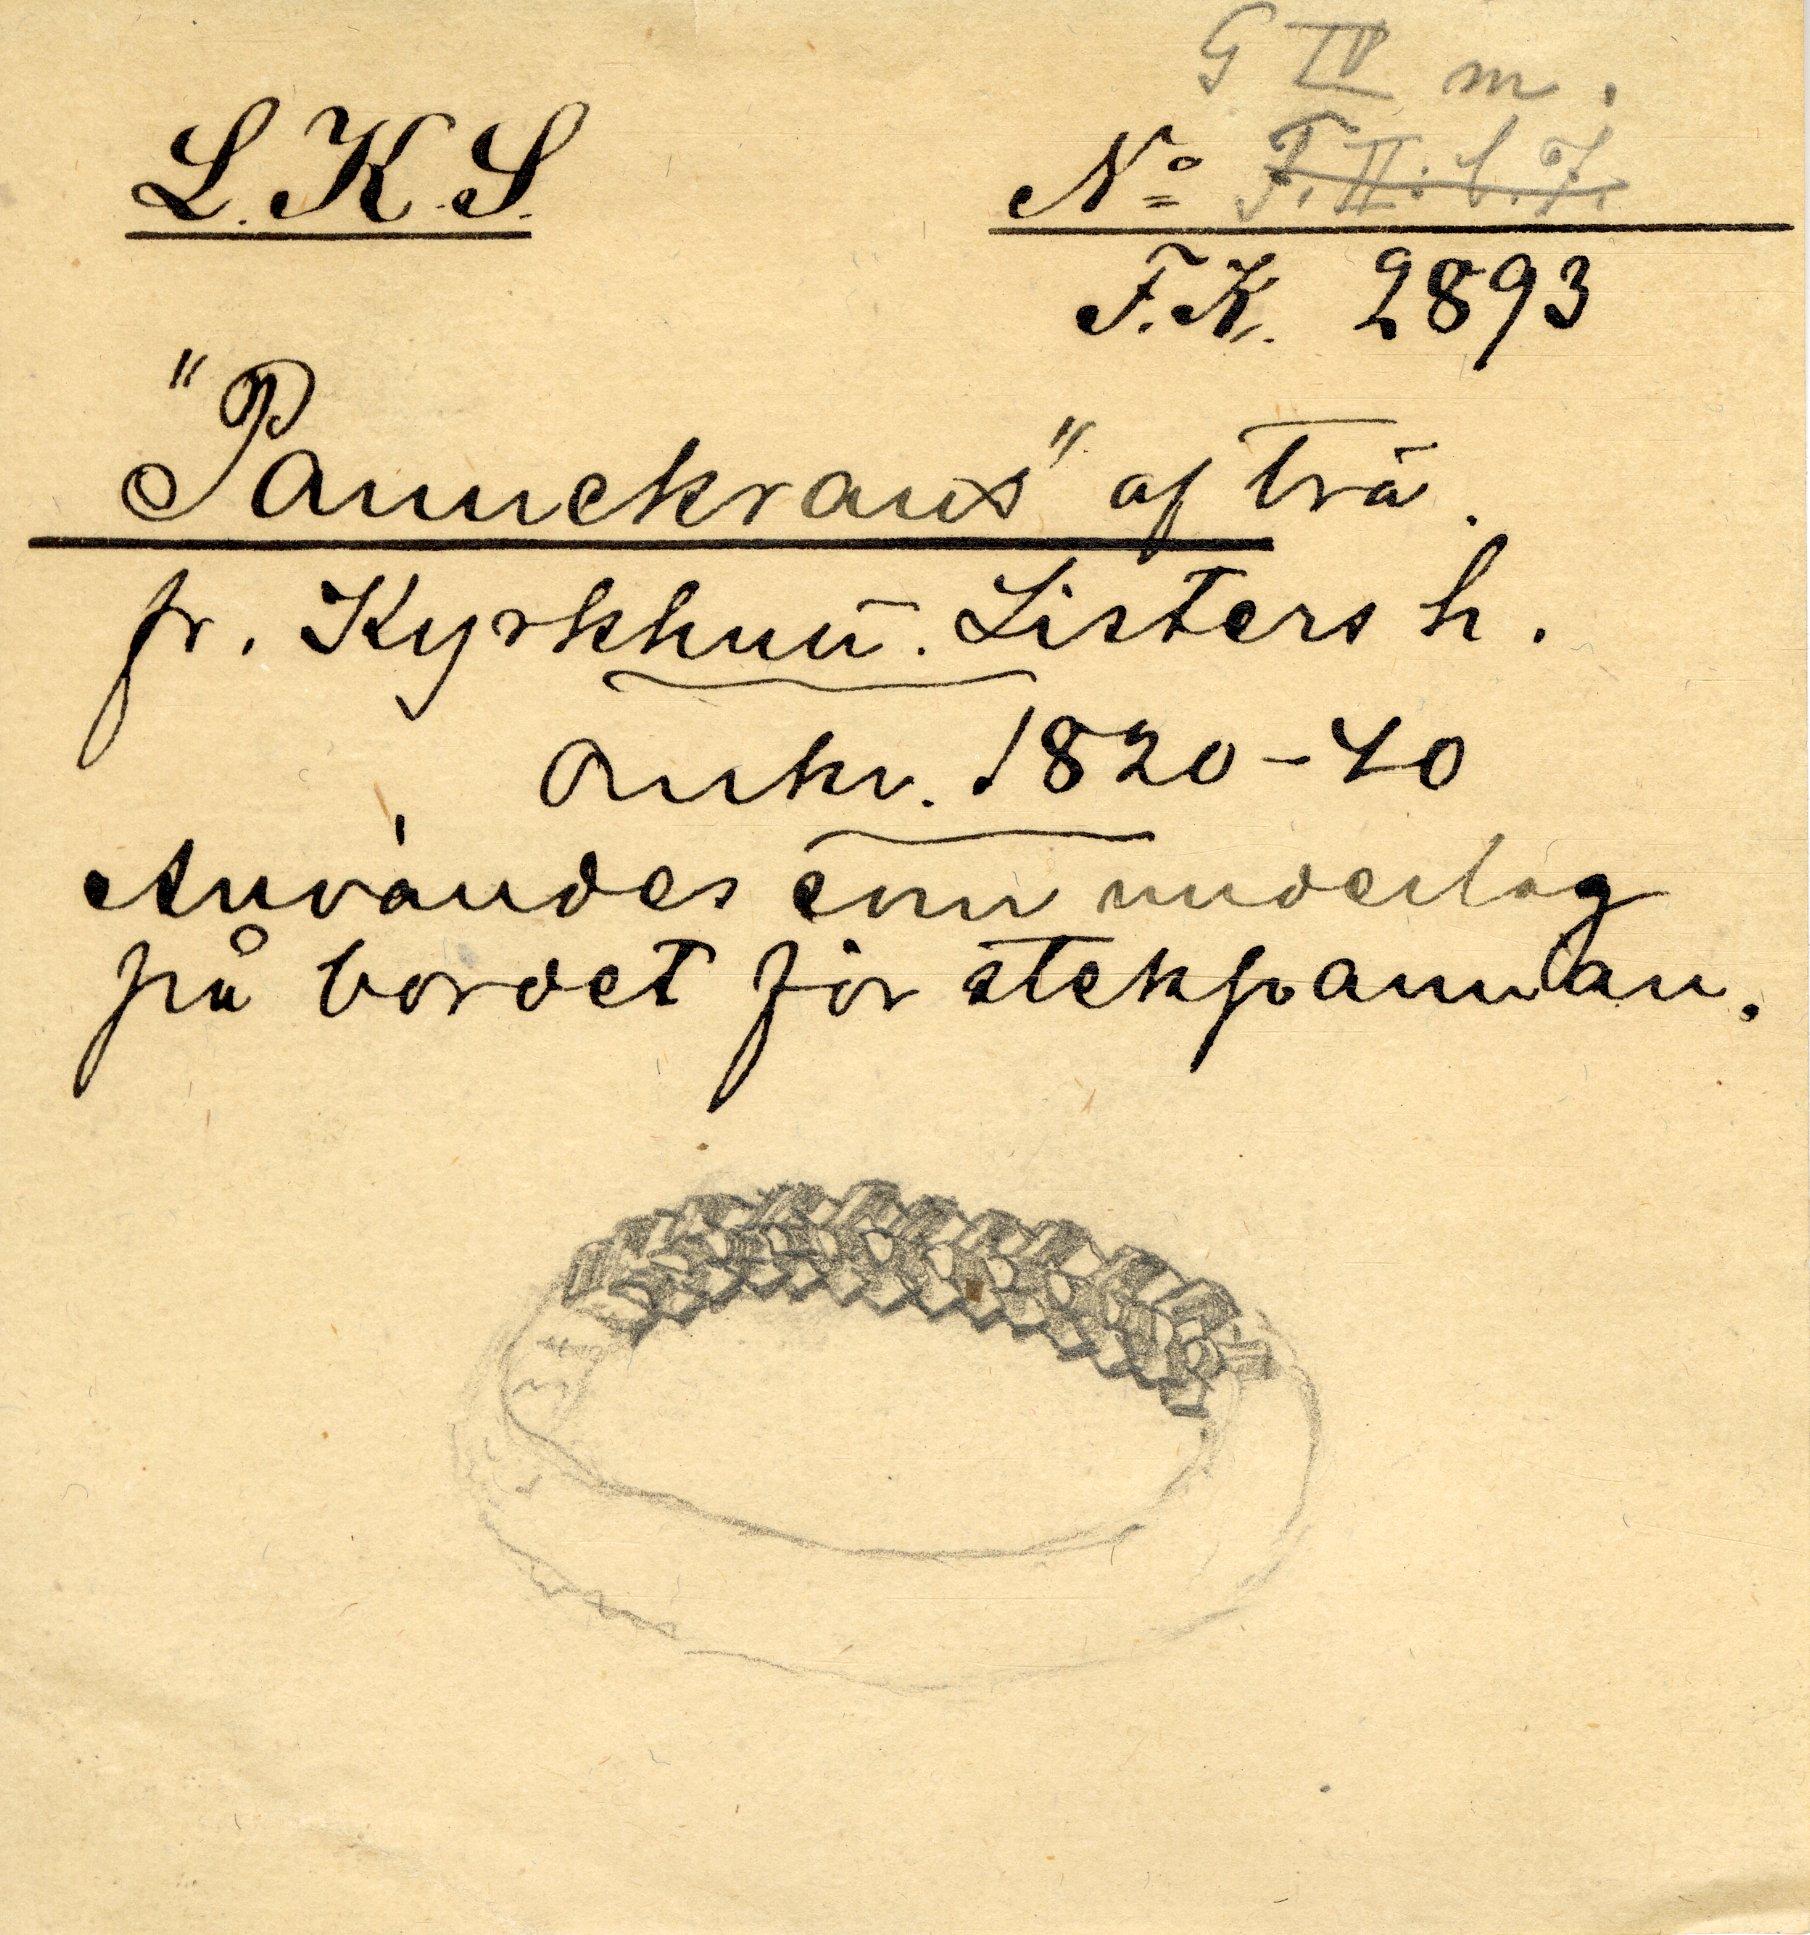 G IV m.
L.K.S.
No F.II:b.7.
F.K. 2893
"Pannekrans" af trä.
fr. Kyrkhult. Listers h.
omkr. 1820-40
Användes som underlag
på bordet för stekpannan.